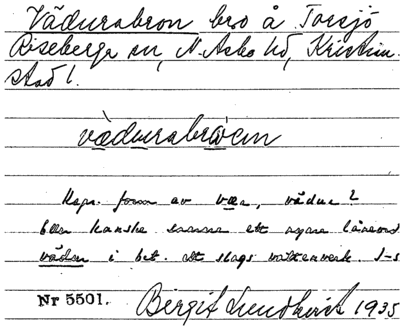 Vädursbron bro å Torsjö
Riseberga sn, N. Asbo hd, Kristian-
stad l.
vädursbro̤en
Uspr. form av vær, vädur?
Eller kanske samma ett annat lånord
vädur i bet. ett slags vattenverk.
Nr 5501. Birgit Lundkvist 1935